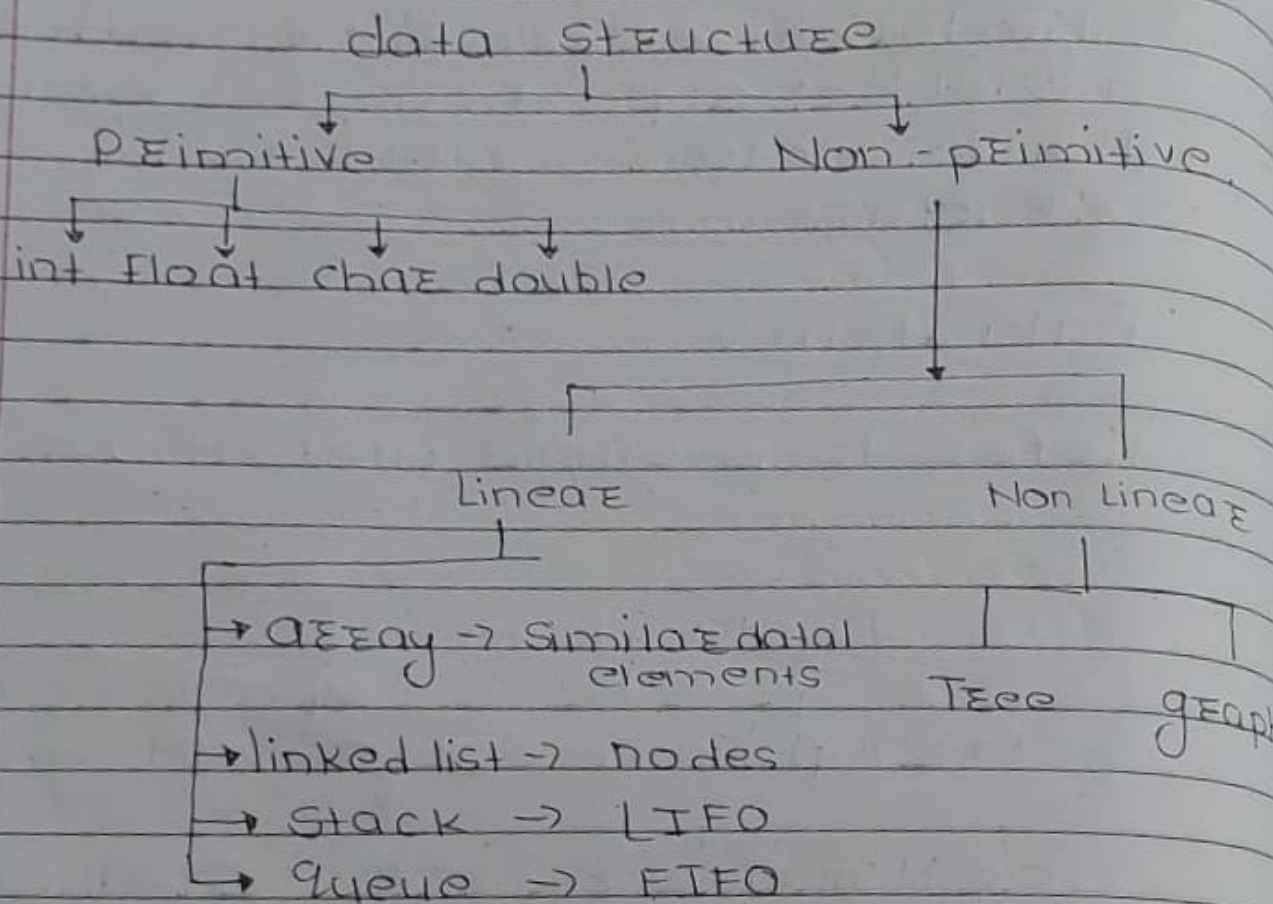 data structure
Primitive Non-primitive
int float char double
Linear Non Linear
array → Similar datal
elements
Tree graph
linked list → nodes
Stack → LIFO
queue → FIFO